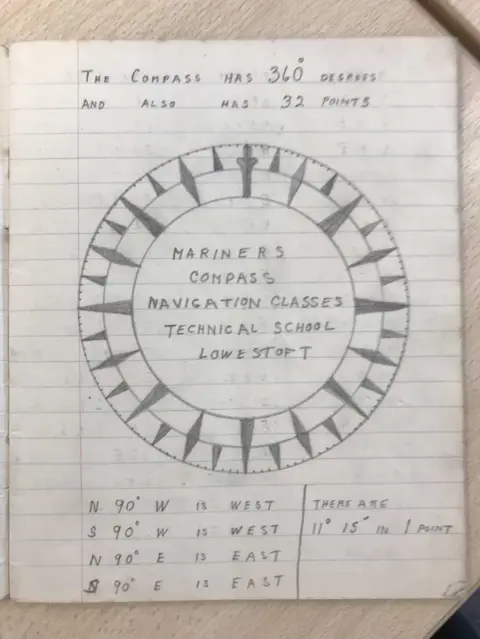 THE COMPASS HAS 360° DEGREES
AND ALSO HAS 32 POINTS
MARINERS
COMPASS
NAVIGATION CLASSES
TECHNICAL SCHOOL
LOWESTOFT
N 90° W IS WEST
S 90° W IS WEST
N 90° E IS EAST
S 90° E IS EAST
THERE ARE
11° 15" IN 1 POINT